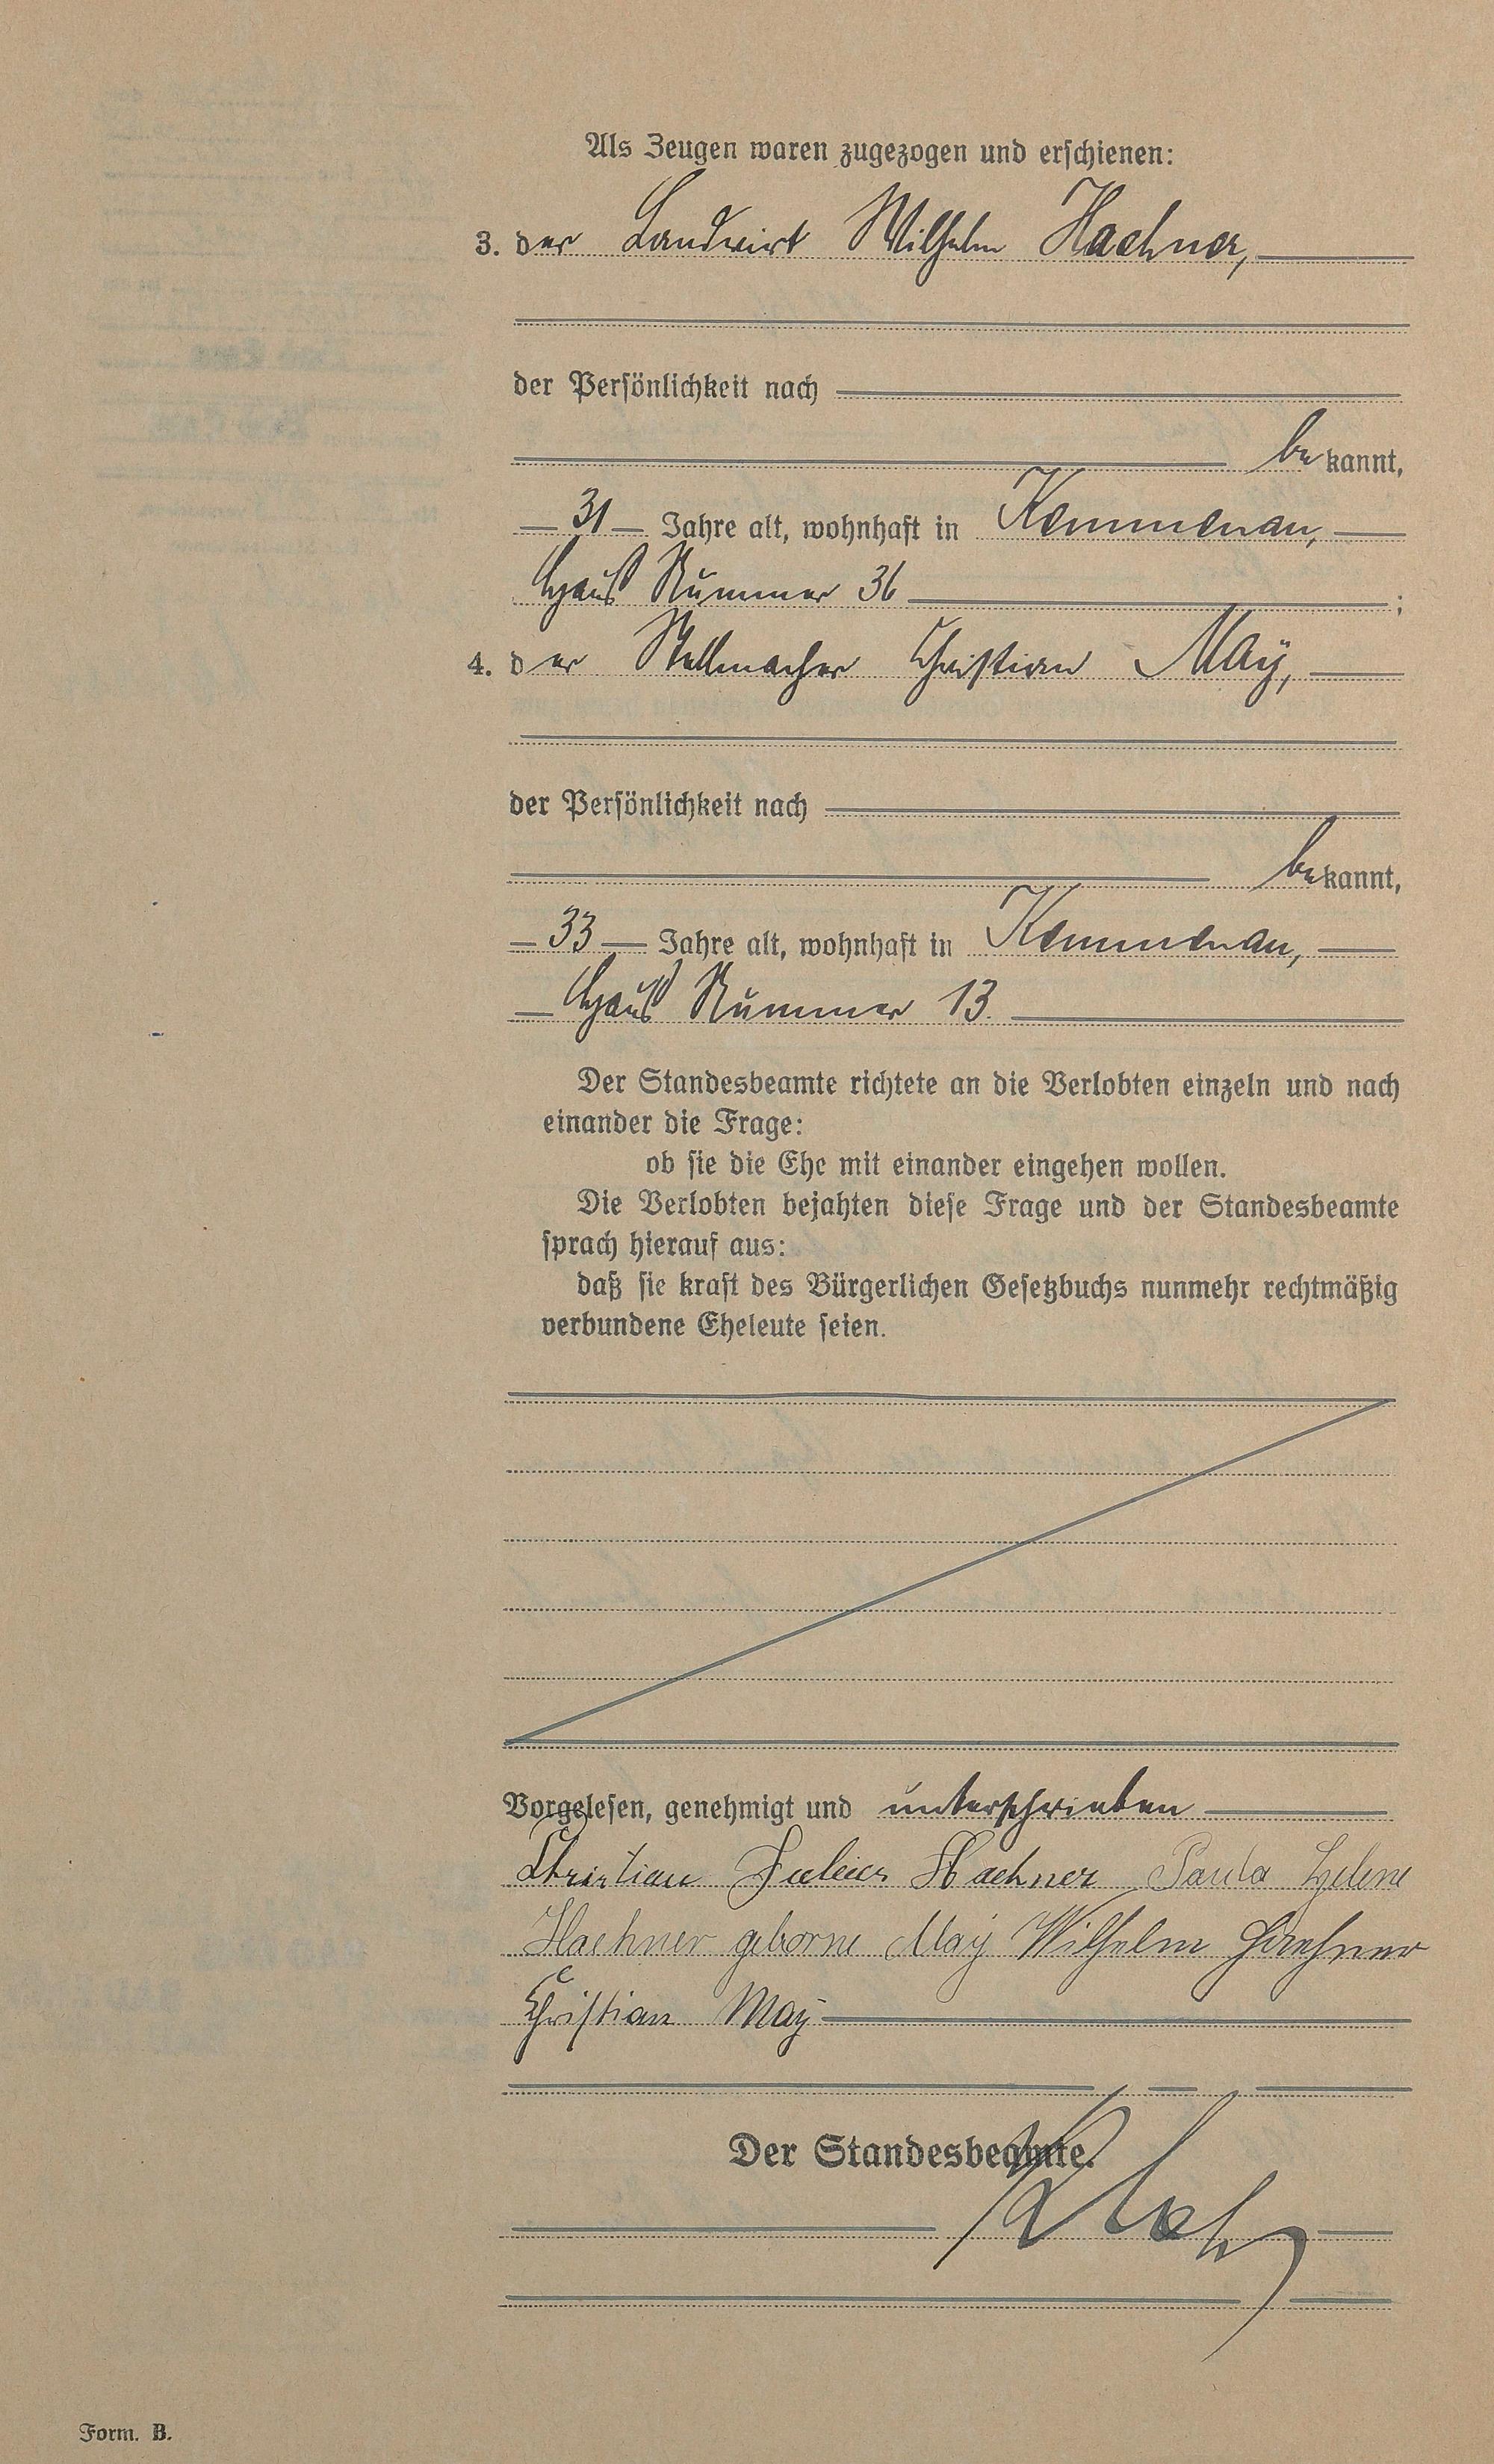 Als Zeugen waren zugezogen und erschienen:
3. der Landwirt Wilhelm Haehner,
der Persönlichkeit nach
be kannt,
31 Jahre alt, wohnhaft in Kemmenau,
Haus Nummer 36 ;
4. der Stellmacher Christian May,
der Persönlichkeit nach
be kannt,
33 Jahre alt, wohnhaft in Kemmenau,
Haus Nummer 13.
Der Standesbeamte richtete an die Verlobten einzeln und nach
einander die Frage:
ob sie die Ehe mit einander eingehen wollen.
Die Verlobten bejahten diese Frage und der Standesbeamte
sprach hierauf aus:
daß sie kraft des Bürgerlichen Gesetzbuchs nunmehr rechtmäßig
verbundene Eheleute seien.
Vorgelesen, genehmigt und unterschrieben
Christian Julius Haehner Paula Helene
Haehner geborne May Wilhelm Haehner
Christian May
Der Standesbeamte.
Form. B.